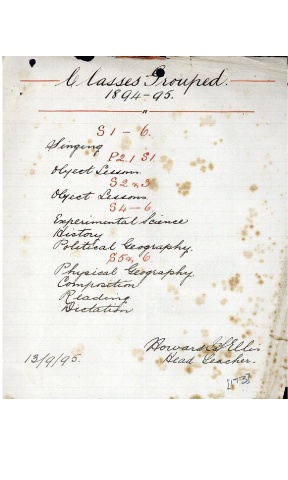 Classes Grouped.
1894-95.
S1 - 6.
Singing
P2.1 S1
Object Lessons.
S2 & 3
Object Lessons
S4-6
Experimental Science
History
Political Geography.
S5 & 6
Physical Geography
Composition
Reading
Dictation
Howard Ellis
13/9/95. Head Teacher.